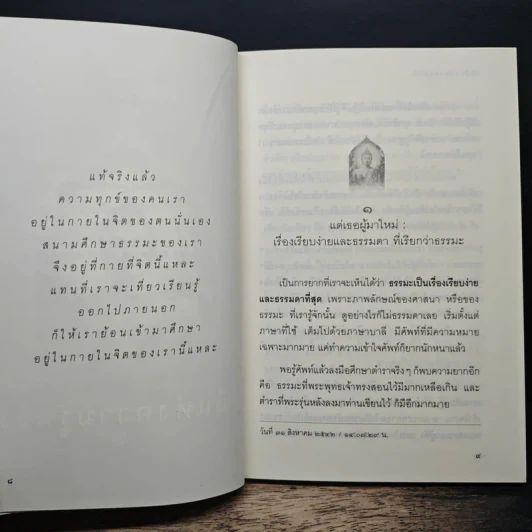 แท้จริงแล้ว
ความทุกข์ของคนเรา
อยู่ในกายในจิตของตนนั่นเอง
สนามศึกษาธรรมะของเรา
จึงอยู่ที่กายที่จิตนี้แหละ
แทนที่เราจะเที่ยวเรียนรู้
ออกไปภายนอก
ก็ให้เราย้อนเข้ามาศึกษา
อยู่ในกายในจิตของเรานี้แหละ
๘
๑
แด่เธอผู้มาใหม่ :
เรื่องเรียบง่ายและธรรมดา ที่เรียกว่าธรรมะ
เป็นการยากที่เราจะเห็นได้ว่า ธรรมะเป็นเรื่องเรียบง่าย
และธรรมดาที่สุด เพราะภาพลักษณ์ของศาสนา หรือของ
ธรรมะ ที่เรารู้จักนั้น ดูอย่างไรก็ไม่ธรรมดาเลย เริ่มตั้งแต่
ภาษาที่ใช้ เต็มไปด้วยภาษาบาลี มีศัพท์ที่มีความหมาย
เฉพาะมากมาย แค่ทำความเข้าใจศัพท์ก็ยากนักหนาแล้ว
พอรู้ศัพท์แล้วลงมือศึกษาตำราจริงๆ ก็พบความยากอีก
คือ ธรรมะที่พระพุทธเจ้าทรงสอนไว้มีมากเหลือเกิน และ
ตำราที่พระรุ่นหลังลงมาท่านเขียนไว้ ก็มีอีกมากมาย
วันที่ ๓๑ สิงหาคม ๒๕๔๒ / ๑๔:๐๗:๒๙ น.
๙